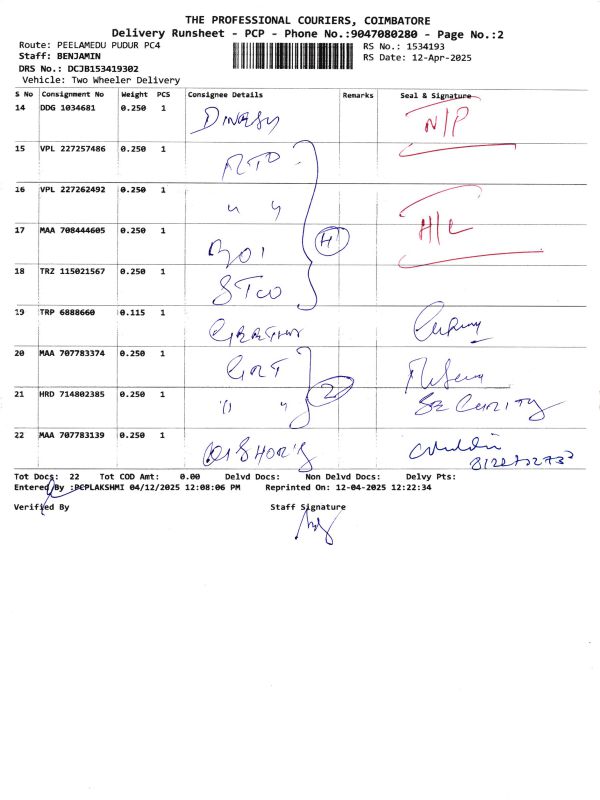 THE PROFESSIONAL COURIERS, COIMBATORE
Delivery Runsheet - PCP - Phone No.:9047080280 - Page No.:2
Route: PEELAMEDU PUDUR PC4
RS No.: 1534193
Staff: BENJAMIN
RS Date: 12-Apr-2025
DRS No.: DCJB153419302
Vehicle: Two Wheeler Delivery
S No Consignment No Weight PCS Consignee Details Remarks Seal & Signature
14 DDG 1034681 0.250 1 N/P
15 VPL 227257486 0.250 1 RTO
16 VPL 227262492 0.250 1 " "
4
17 MAA 708444605 0.250 1 BOI
18 TRZ 115021567 0.250 1
19 TRP 6888660 0.115 1
20 MAA 707783374 0.250 1 GRT
2
21 HRD 714802385 0.250 1 " " SECURITY
22 MAA 707783139 0.250 1
Tot Docs: 22 Tot COD Amt: 0.00 Delvd Docs: Non Delvd Docs: Delvy Pts:
Entered By :PCPLAKSHMI 04/12/2025 12:08:06 PM Reprinted On: 12-04-2025 12:22:34
Verified By Staff Signature